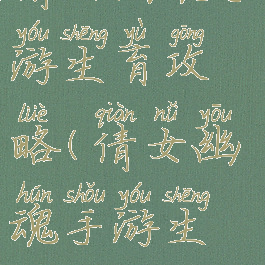 yóu shēng yù gōng
游生育攻
lüè (qiàn nǚ yōu
略(倩女幽
hún shǒu yóu shēng
魂手游生